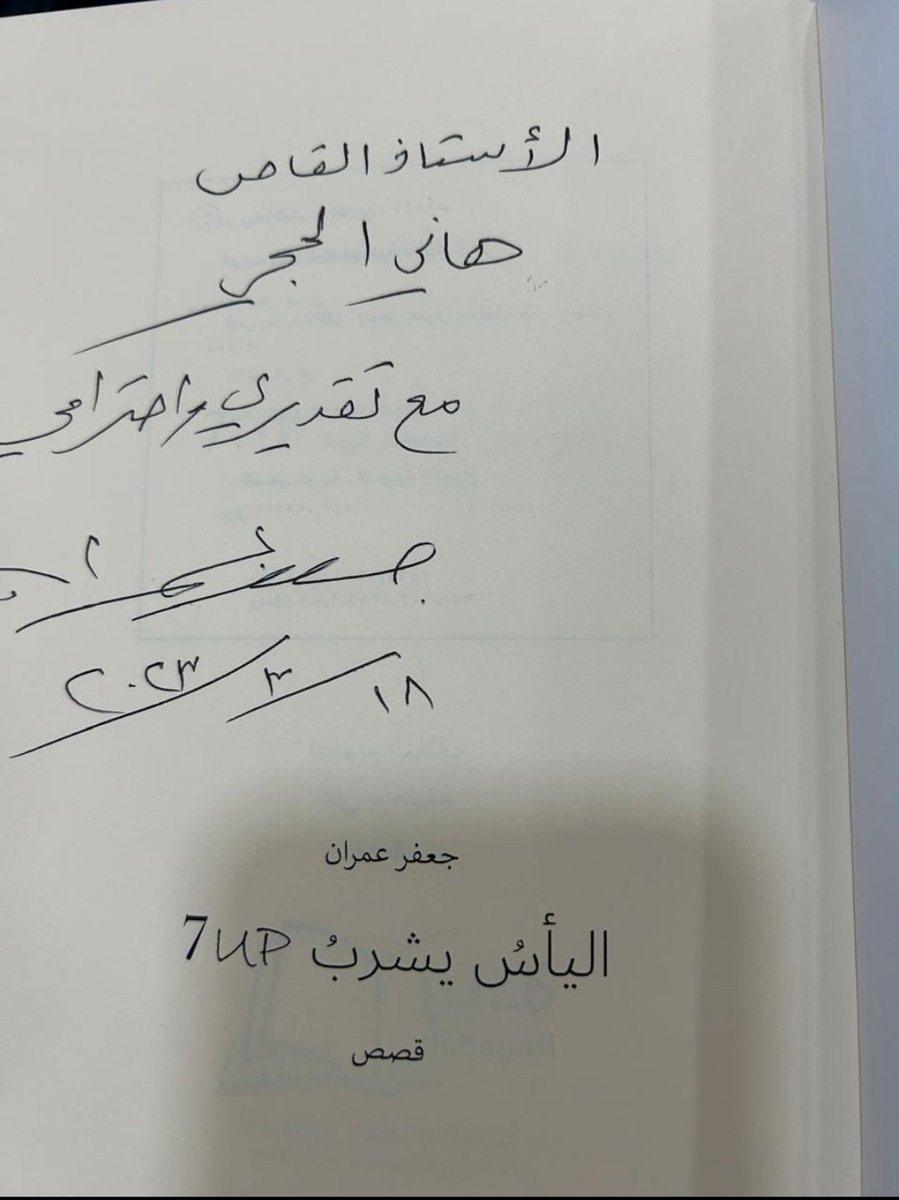 الأستاذ القاص
هاني الحجي
مع تقديري واحترامي
جعفر
١٨/٣/٢٠٢٣
جعفر عمران
اليأسُ يشربُ 7UP
قصص